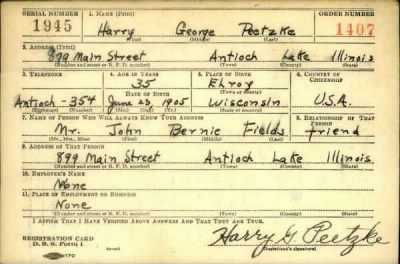 SERIAL NUMBER 1. NAME (Print) ORDER NUMBER
1945 Harry George Peetzke 1407
(First) (Middle) (Last)
2. ADDRESS (Print)
899 Main Street Antioch Lake Illinois
(Number and street or R. F. D. number) (Town) (County) (State)
3. TELEPHONE 4. AGE IN YEARS 5. PLACE OF BIRTH 6. COUNTRY OF CITIZENSHIP
35 Elroy
DATE OF BIRTH (Town or county)
Antioch - 354 June 23 1905 Wisconsin U.S.A.
(Exchange) (Number) (Mo.) (Day) (Yr.) (State or country)
7. NAME OF PERSON WHO WILL ALWAYS KNOW YOUR ADDRESS 8. RELATIONSHIP OF THAT PERSON
Mr. John Bernie Fields friend
(Mr., Mrs., Miss) (First) (Middle) (Last)
9. ADDRESS OF THAT PERSON
899 Main Street Antioch Lake Illinois
(Number and street or R. F. D. number) (Town) (County) (State)
10. EMPLOYER'S NAME
None
11. PLACE OF EMPLOYMENT OR BUSINESS
None
(Number and street or R. F. D. number) (Town) (County) (State)
I AFFIRM THAT I HAVE VERIFIED ABOVE ANSWERS AND THAT THEY ARE TRUE.
REGISTRATION CARD
D. S. S. Form 1
Harry G. Peetzke
(Registrant's signature)